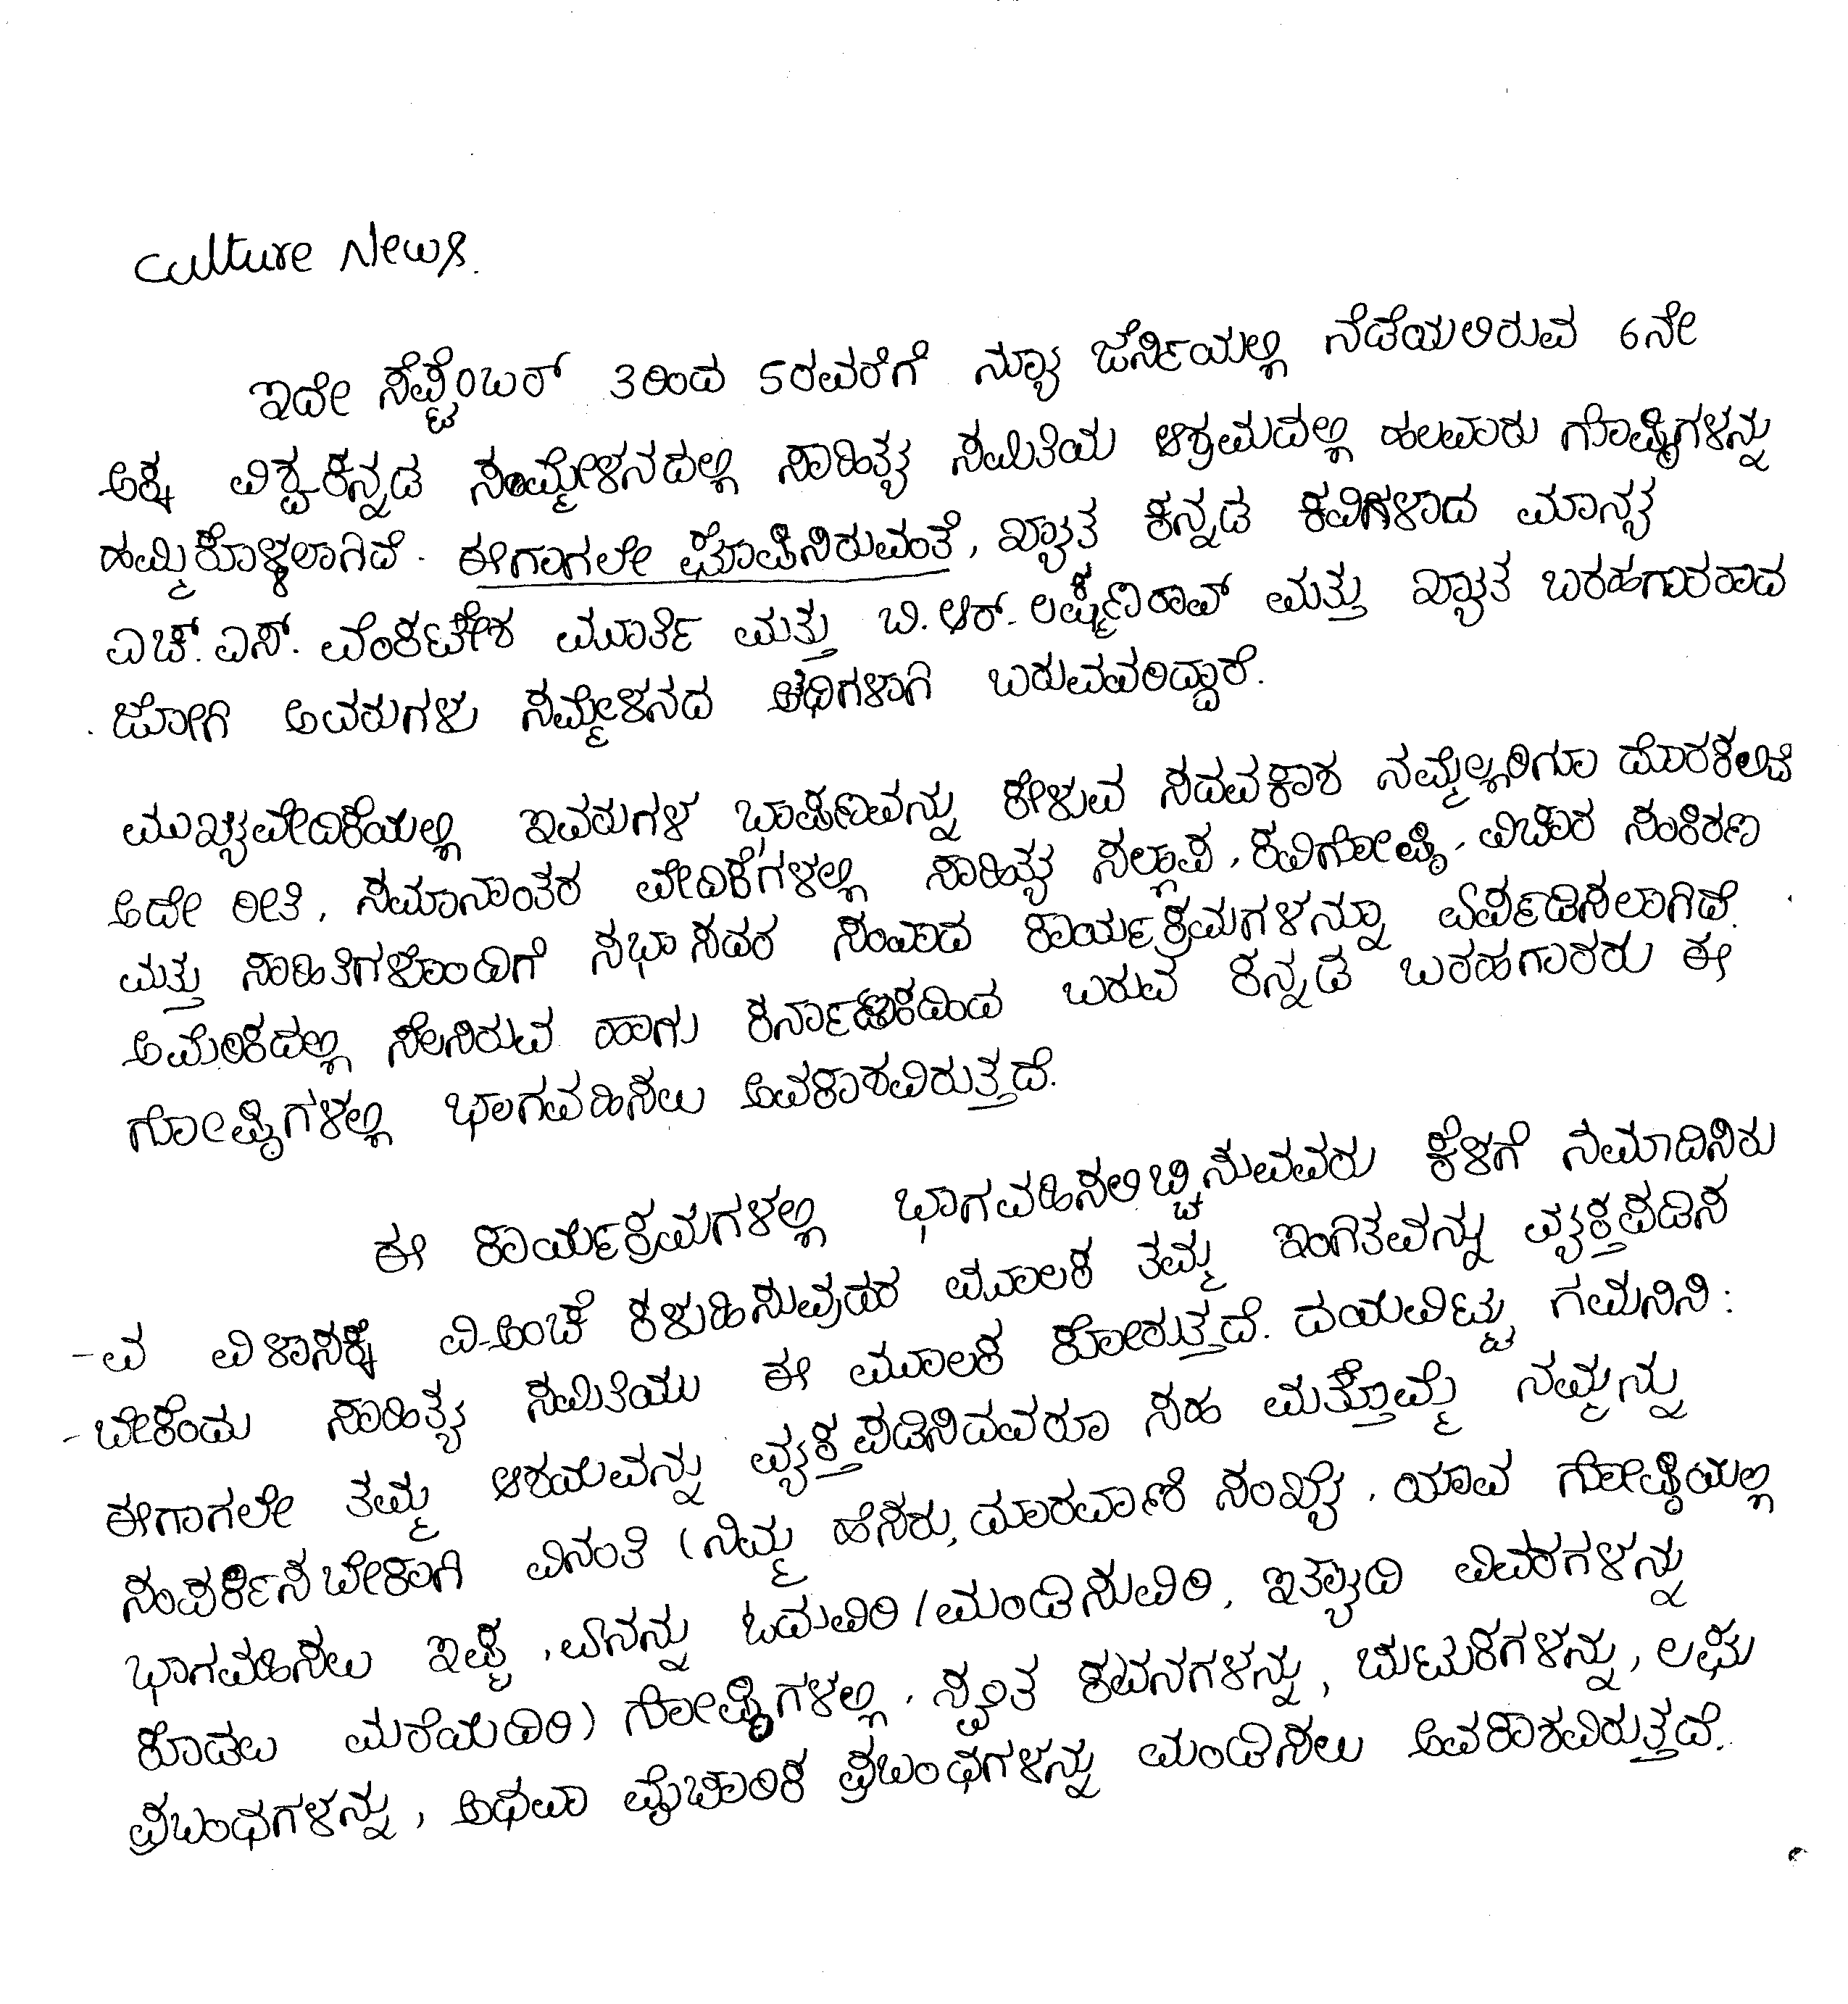 Culture News.
ಇದೇ ಸೆಪ್ಟೆಂಬರ್ 3ರಿಂದ 5ರವರೆಗೆ ನ್ಯೂ ಜೆರ್ಸಿಯಲ್ಲಿ ನೆಡೆಯಲಿರುವ 6ನೇ
ಅಕ್ಕ ವಿಶ್ವಕನ್ನಡ ಸಂಮ್ಮೇಳನದಲ್ಲಿ ಸಾಹಿತ್ಯ ಸಮಿತಿಯ ಆಶ್ರಮದಲ್ಲಿ ಹಲವಾರು ಗೋಷ್ಠಿಗಳನ್ನು
ಹಮ್ಮಿಕೊಳ್ಳಲಾಗಿದೆ. ಈಗಾಗಲೇ ಘೋಷಿಸಿರುವಂತೆ, ಖ್ಯಾತ ಕನ್ನಡ ಕವಿಗಳಾದ ಮಾನ್ಯ
ಎಚ್.ಎಸ್. ವೆಂಕಟೇಶ ಮೂರ್ತಿ ಮತ್ತು ಬಿ.ಆರ್. ಲಕ್ಷ್ಮಣರಾವ್ ಮತ್ತು ಖ್ಯಾತ ಬರಹಗಾರರಾದ
ಜೋಗಿ ಅವರುಗಳು ಸಮ್ಮೇಳನದ ಅಥಿಗಳಾಗಿ ಬರುವವರಿದ್ದಾರೆ.
ಮುಖ್ಯವೇದಿಕೆಯಲ್ಲಿ ಇವರುಗಳ ಭಾಷಣವನ್ನು ಕೇಳುವ ಸದವಕಾಶ ನಮ್ಮೆಲ್ಲರಿಗೂ ದೊರಕಲಿದೆ
ಅದೇ ರೀತಿ, ಸಮಾನಾಂತರ ವೇದಿಕೆಗಳಲ್ಲಿ ಸಾಹಿತ್ಯ ಸಲ್ಲಾಪ, ಕವಿಗೋಷ್ಠಿ, ವಿಚಾರ ಸಂಕಿರಣ
ಮತ್ತು ಸಾಹಿತಿಗಳೊಂದಿಗೆ ಸಭಾಸದರ ಸಂವಾದ ಕಾರ್ಯಕ್ರಮಗಳನ್ನೂ ಏರ್ಪಡಿಸಲಾಗಿದೆ.
ಅಮೇರಿಕದಲ್ಲಿ ನೆಲಸಿರುವ ಹಾಗು ಕರ್ನಾಟಕದಿಂದ ಬರುವ ಕನ್ನಡ ಬರಹಗಾರರು ಈ
ಗೋಷ್ಠಿಗಳಲ್ಲಿ ಭಾಗವಹಿಸಲು ಅವಕಾಶವಿರುತ್ತದೆ.
ಈ ಕಾರ್ಯಕ್ರಮಗಳಲ್ಲಿ ಭಾಗವಹಿಸಲಿಚ್ಚಿಸುವವರು ಕೆಳಗೆ ನಮಾದಿಸಿರು
-ವ ವಿಳಾಸಕ್ಕೆ ವಿ-ಅಂಚೆ ಕಳುಹಿಸುವುದರ ಮೂಲಕ ತಮ್ಮ ಇಂಗಿತವನ್ನು ವ್ಯಕ್ತಪಡಿಸ
-ಬೇಕೆಂದು ಸಾಹಿತ್ಯ ಸಮಿತಿಯು ಈ ಮೂಲಕ ಕೋರುತ್ತದೆ. ದಯವಿಟ್ಟು ಗಮನಿಸಿ:
ಈಗಾಗಲೇ ತಮ್ಮ ಆಶಯವನ್ನು ವ್ಯಕ್ತಪಡಿಸಿದವರೂ ಸಹ ಮತ್ತೊಮ್ಮೆ ನಮ್ಮನ್ನು
ಸಂಪರ್ಕಿಸಬೇಕಾಗಿ ವಿನಂತಿ (ನಿಮ್ಮ ಹೆಸರು, ದೂರವಾಣಿ ಸಂಖ್ಯೆ, ಯಾವ ಗೋಷ್ಠಿಯಲ್ಲಿ
ಭಾಗವಹಿಸಲು ಇಷ್ಟ, ಏನನ್ನು ಓದುವಿರಿ/ಮಂಡಿಸುವಿರಿ, ಇತ್ಯಾದಿ ವಿವರಗಳನ್ನು
ಕೊಡಲು ಮರೆಯದಿರಿ) ಗೋಷ್ಠಿಗಳಲ್ಲಿ, ಸ್ವಂತ ಕವನಗಳನ್ನು, ಚುಟುಕಗಳನ್ನು, ಲಘು
ಪ್ರಬಂಧಗಳನ್ನು, ಅಥವಾ ವೈಚಾರಿಕ ಪ್ರಬಂಧಗಳನ್ನು ಮಂಡಿಸಲು ಅವಕಾಶವಿರುತ್ತದೆ.